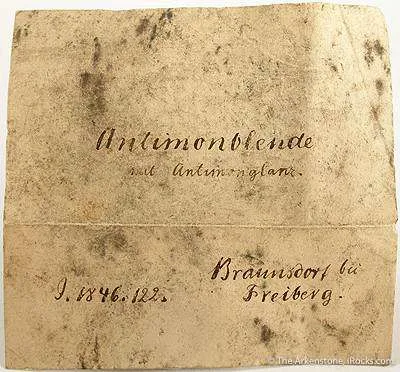 Antimonblende
mit Antimonglanz.
J. 1846. 122.
Braunsdorf bei
Freiberg.
© The Arkenstone, iRocks.com